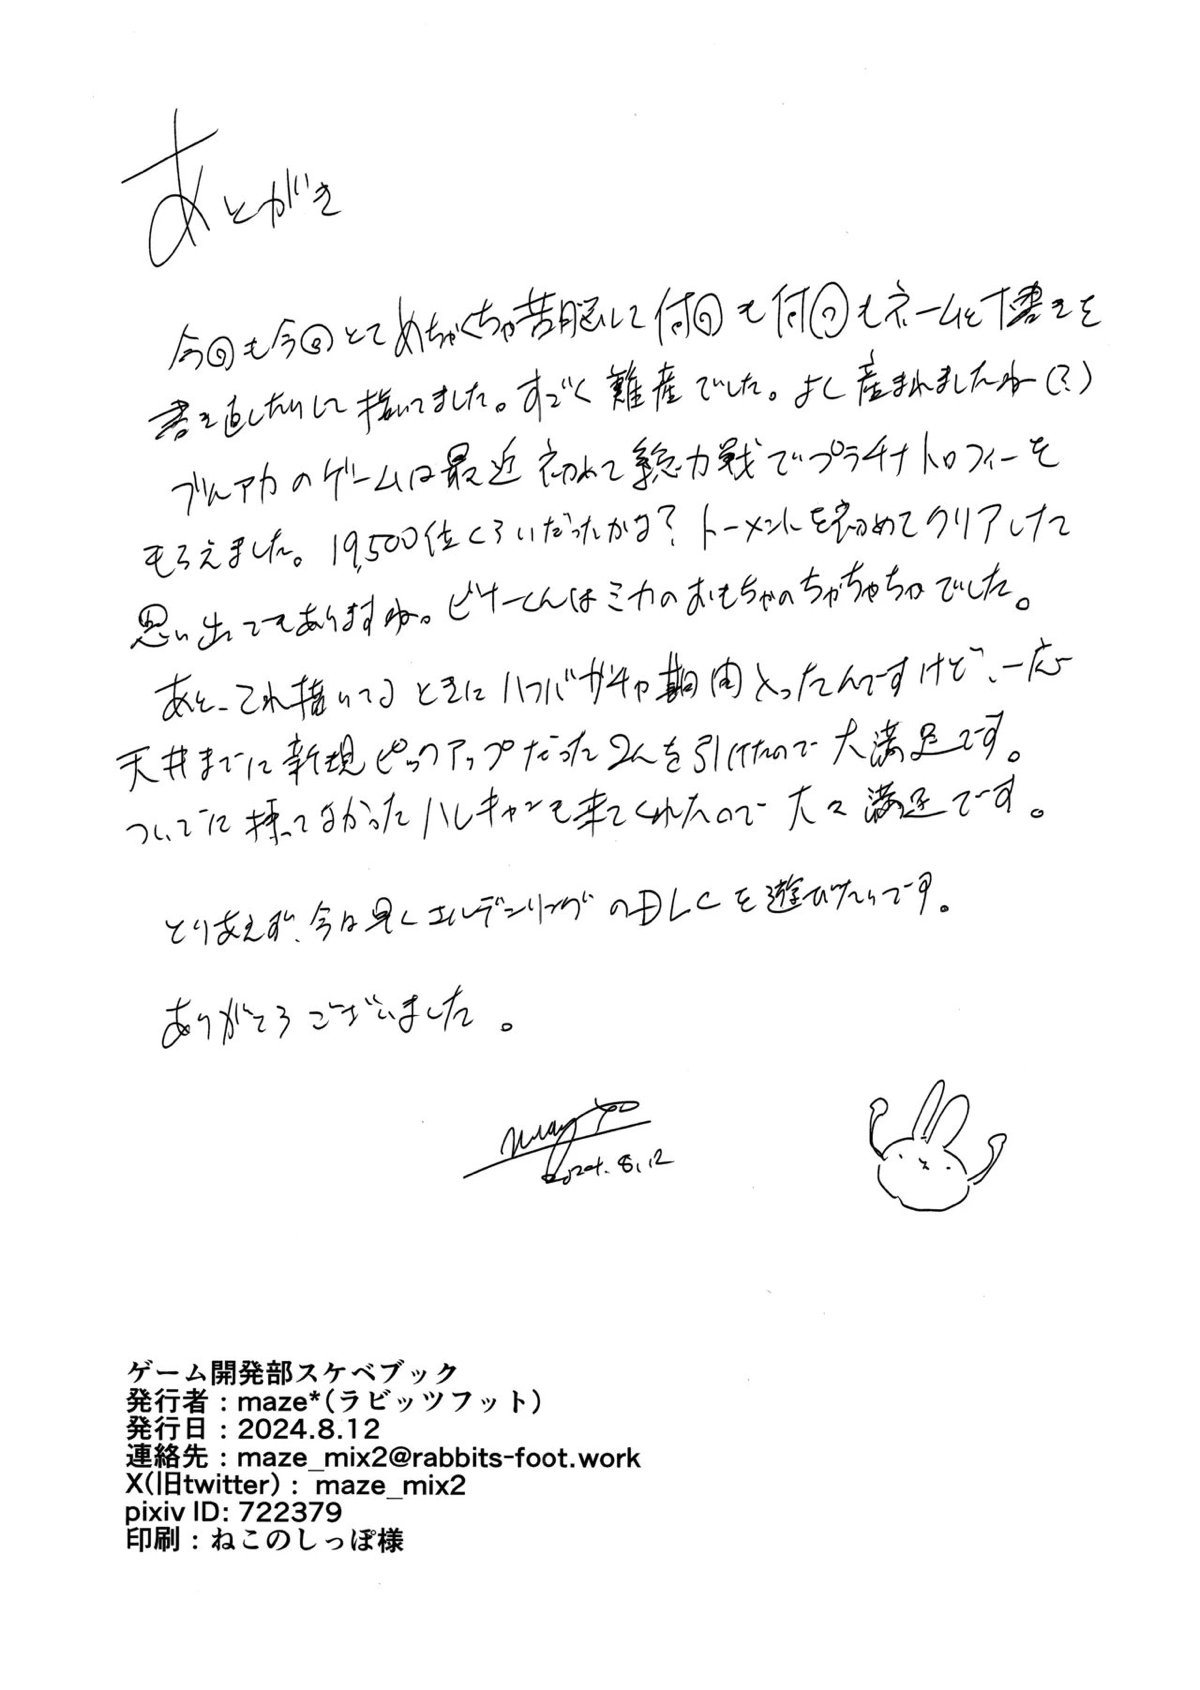 あとがき
今回も今回とてめちゃくちゃ苦悩して何回も何回もネームと下書きを
書き直したりして描いてました。すごく難産でした。よく産まれましたねー(?)
ブルアカのゲームは最近初めて総力戦でプラチナトロフィーを
もらえました。19,500位くらいだったかな?トーメントを初めてクリアしたて
思い出でもありますね。ビナーくんはミカのおもちゃのちゃちゃちゃでした。
あと、これ描いてるときにハフバガチャ期間入ったんですけど、一応
天井までに新規ピックアップだった2人を引けたので大満足です。
ついでに持ってなかったハレキャンも来てくれたので大々満足です。
とりあえず、今は早くエルデンリングのDLCを遊びたいです。
ありがとうございました。
2024.8.12
ゲーム開発部スケベブック
発行者：maze*(ラビッツフット)
発行日：2024.8.12
連絡先：maze_mix2@rabbits-foot.work
X(旧twitter)： maze_mix2
pixiv ID: 722379
印刷：ねこのしっぽ様